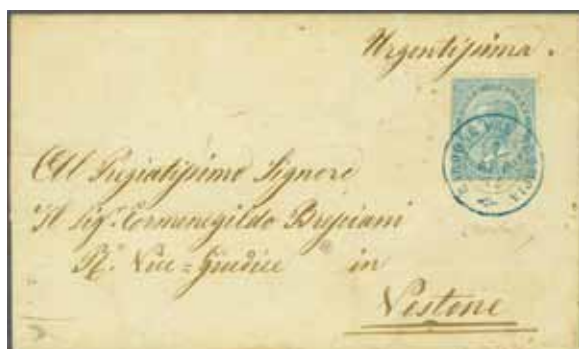 Urgentissima.
All Pregiatissimo Signore
Il Sig.r Ermenegildo Bresciani
R.o Vice=Giudice in
Vestone